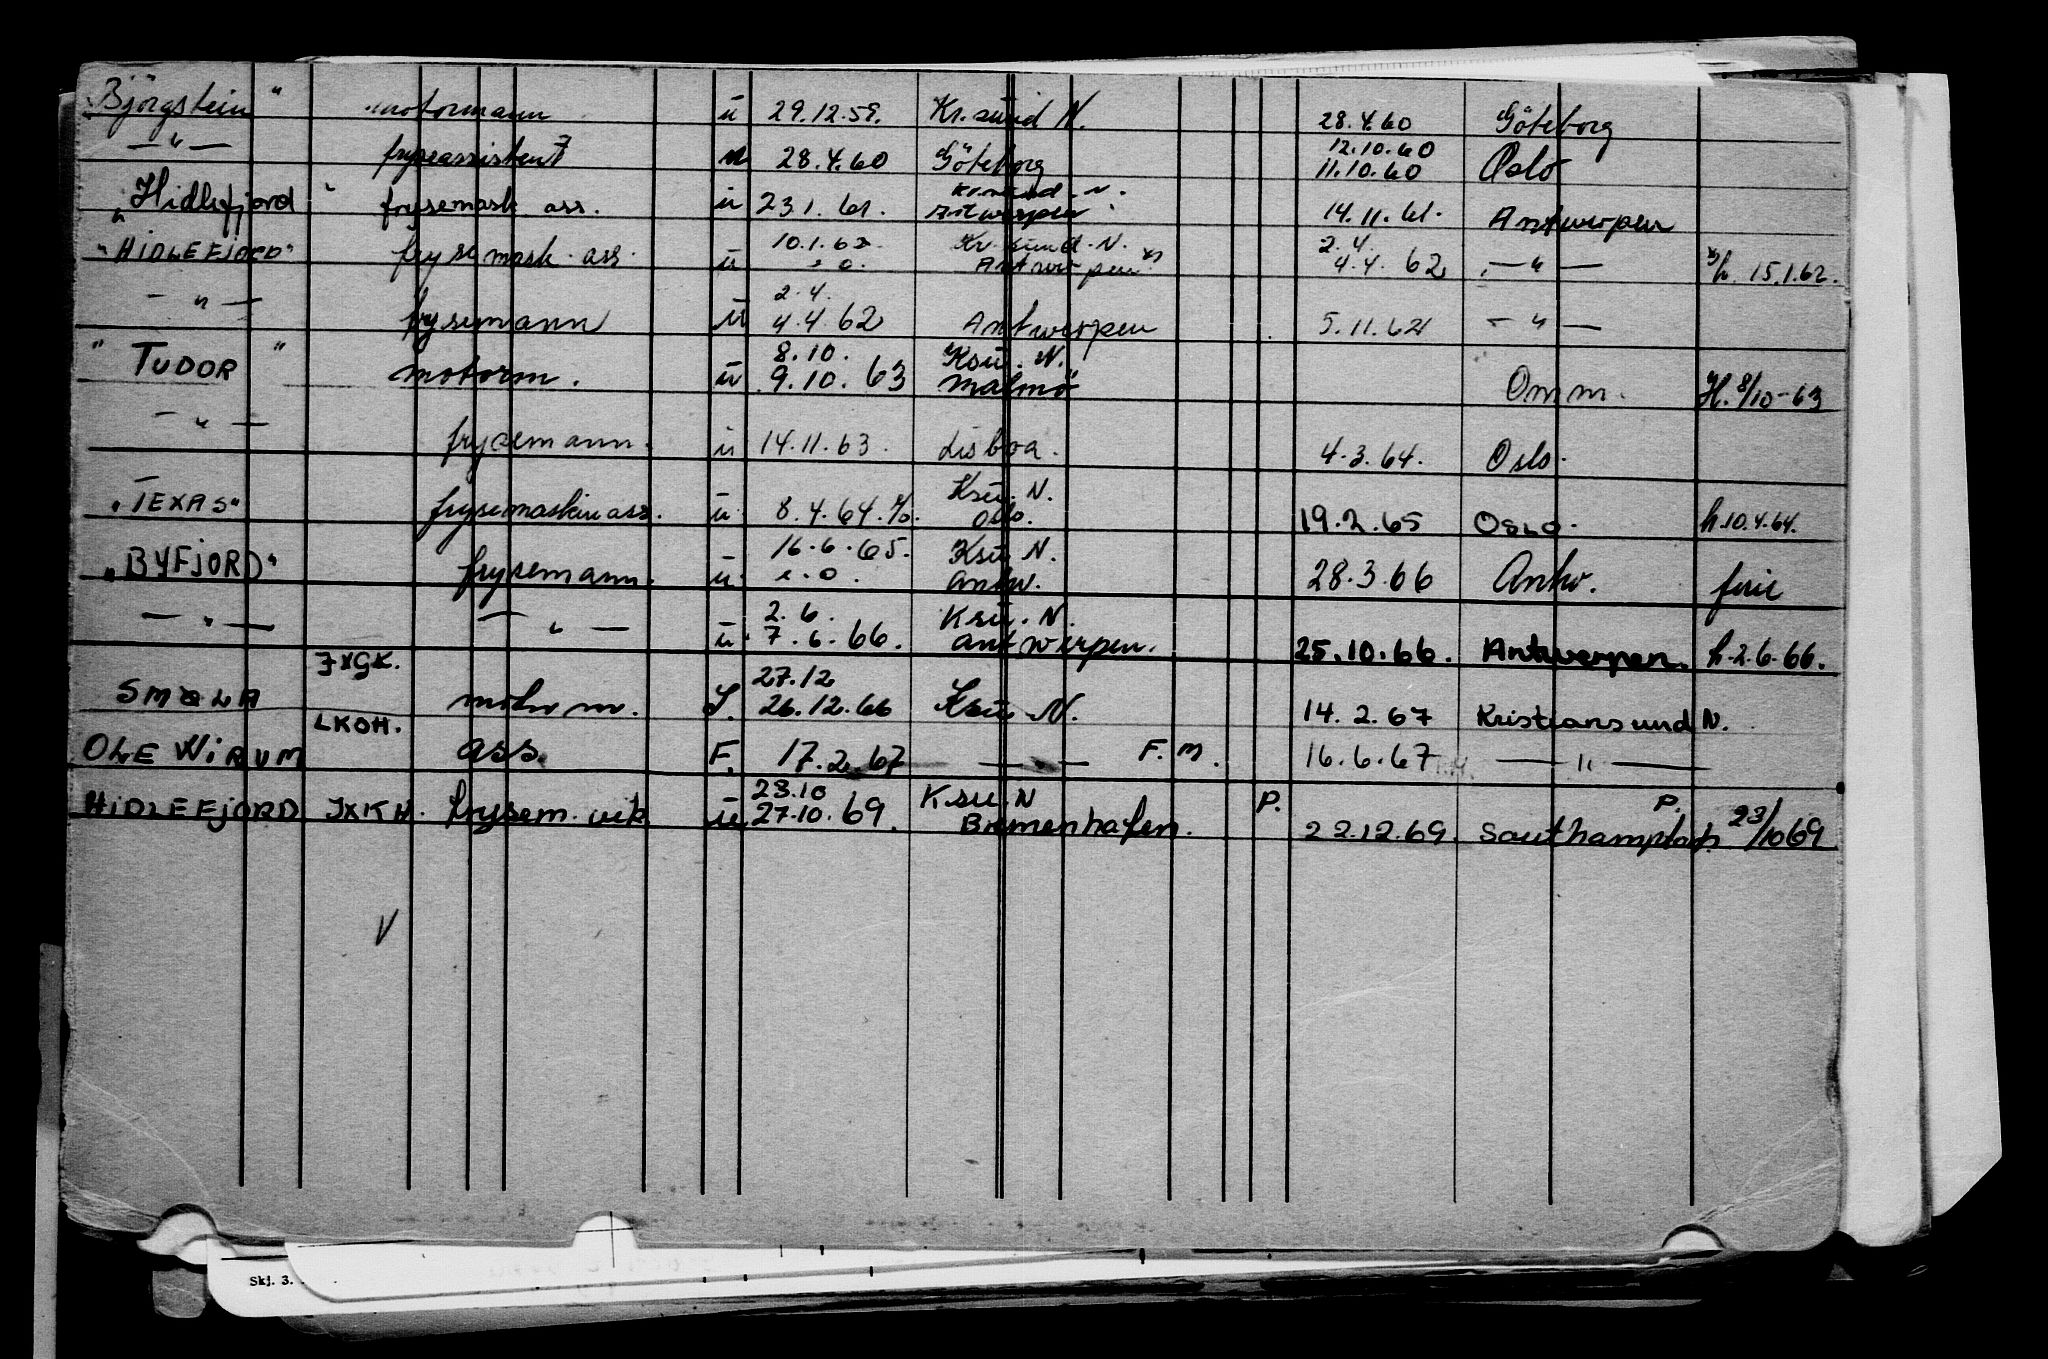 "Bjørgstein" motormann ü 29.12.59. Kr.sund N. 28.4.60 Göteborg
— " — fryseassistent ü 28.4.60 Göteborg 12.10.60 11.10.60 Oslo
"Hidlefjord" frysemask. ass. ü 23.1.61. Kr.sund. N. Antwerpen 14.11.61. Antwerpen
"HIDLEFJORD" frysemask. ass. ü 10.1.62. s.o. Kr.sund. N. Antwerpen 2.4. 4.4.62 — " — h. 15.1.62.
— " — frysemann ü 2.4. 4.4.62 Antwerpen 5.11.62 — " —
"TUDOR" motorm. ü 8.10. 9.10.63 Ksu. N. Malmö Omm. H. 8/10-63
— " — frysemann. ü 14.11.63. Lisboa. 4.3.64. Oslo.
"TEXAS" frysemaskinass. ü 8.4.64. Ksu. N. Oslo. 19.2.65 OSLO. h.10.4.64.
"BYFJORD" frysemann. ü 16.6.65. s.o. Ksu N. Antw. 28.3.66 Antw. ferie
— " — — " — ü 2.6. 7.6.66. Ksu. N. Antwerpen. 25.10.66. Antwerpen. h.2.6.66.
SMØLA JXGK. motorm. S. 27.12 26.12.66 Ksu N. 14.2.67 Kristiansund N.
OLE WIRUM LKOH. ass. F. 17.2.67 — " — F.M. 16.6.67 — " —
HIDLEFJORD JXKH. frysem. vik ü 28.10 27.10.69. Ksu. N Bremenhafen. P. 22.12.69. Southampton P. h. 23/10 69
V
Skj. 3.